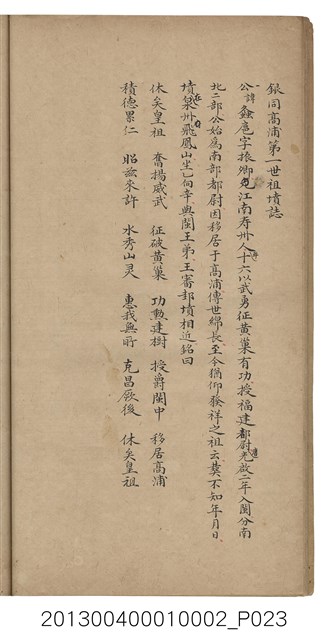 銀同高浦第一世祖墳誌
公諱盡邑字振卿江南寿州人十六以武勇征黃巢有功授福建都尉光啟二年入閩分南
北二部公始為南部都尉因移居于高浦傳世綿長至今猶仰發祥之祖云葬不知年月日
墳在泉州飛鳳山坐乙向辛與閩王弟王審邽墳相近銘曰
休矣皇祖 奮揚威武 征破黃巢 功勳建樹 授爵閩中 移居高浦
積德累仁 昭茲來許 水秀山灵 惠我無前 克昌厥後 休矣皇祖
201300400010002_P023